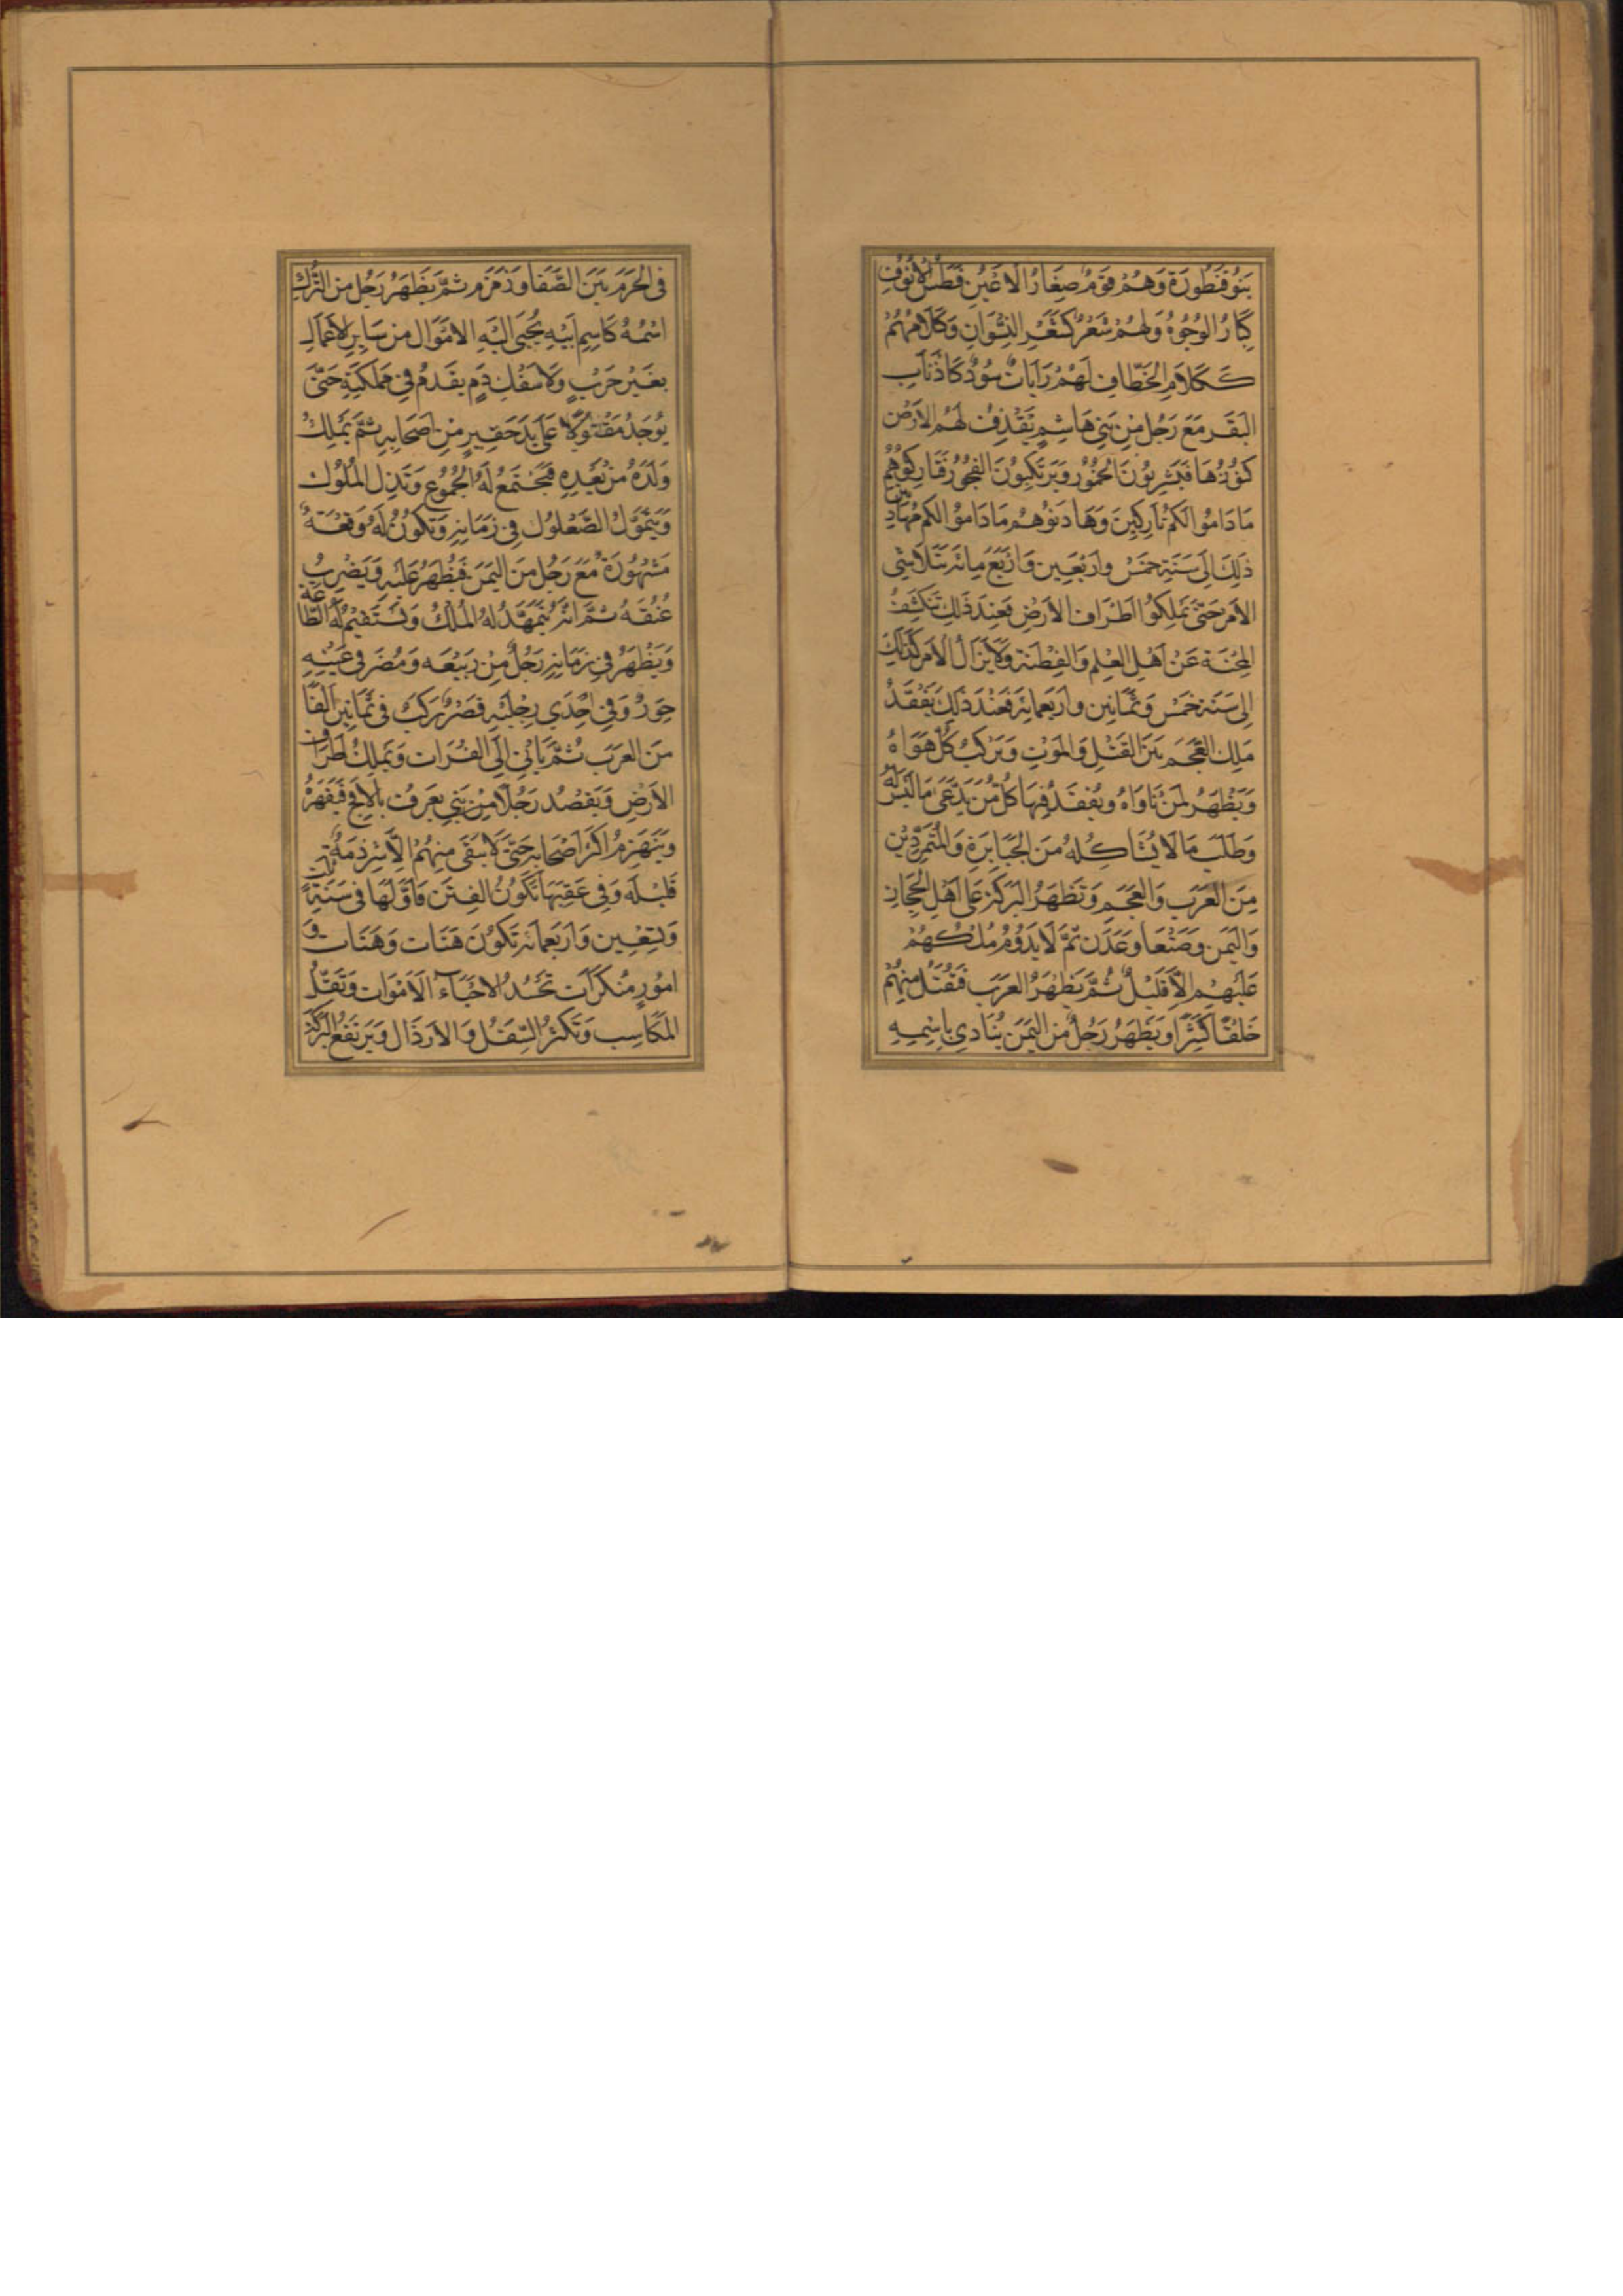 بَنُو قَنْطُورَة وَهُمْ قَوْمٌ صِغَارُ الاَعْيُنِ فُطْسُ الاُنُوفِ
كِبَارُ الوُجُوهِ وَلَهُمْ شَعْرٌ كَشَعْرِ النِّسْوَانِ وَكَلَامُهُمْ
كَكَلَامِ الخَطّافِ لَهُمْ رَايَاتٌ سُودٌ كَاَذْنَابِ
البَقَرِ مَعَ رَجُلٍ مِنْ بَنِي هَاشِمٍ تَقْذِفُ لَهُمُ الاَرْضُ
كُنُوزَهَا فَيَشْرِبُونَ الخُمُورَ وَيَرْتَكِبُونَ الفُجُورَ فَتَارِكُوهُمْ
مَا دَامُوا لَكُمْ تَارِكِينَ وَهَادِنُوهُمْ مَا دَامُوا لَكُمْ مُهَادِنين
ذَلِكَ اِلَى سَنَةِ خَمْسٍ وَاَرْبَعِين وَاَرْبَع مِائَة يَتَلَاشَى
الاَمْر حَتَّى يَمْلِكُوا اَطْرَاف الاَرْضِ فَعِنْدَ ذَلِكَ تَنْكَشِفُ
المِحْنَة عَنْ اَهْلِ العِلْمِ وَالفِطْنَة وَلَا يَزَالُ الاَمْر كَذَلِكَ
اِلَى سَنَة خَمْس وَثَمَانِين وَاَرْبَعمِائَة فَعِنْدَ ذَلِكَ يُفْقَدُ
مَلِك العَجَم بَيْنَ القَتْلِ وَالمَوْتِ وَيَرْكَبُ كُلّ هَوَاهُ
وَيَظْهَرُ لِمَنْ نَاوَاهُ وَيُفْقَدُ فِيهَا كُلّ مَنْ يَدَّعِى مَا لَيْسَ لَهُ
وَطَلَبَ مَا لَا يُشَاكِلهُ مِنَ الجَبَابِرَةِ وَالمُتَمَرِّدِيْن
مِنَ العَرَبِ وَالعَجَمِ وَتَظْهَرُ البَرَكَة عَلَى اَهْلِ الحِجَازِ
وَاليَمَنِ وَصَنْعَا وَعَدَن ثُمَّ لَا يَدُومُ مُلْكُهُمْ
عَلَيْهِم اِلَّا قَلِيْلٌ ثُمَّ يَظْهَرُ العَرَب فَيُقْتَلُ مِنْهُمْ
خَلْقًا كَثِيرًا وَيَظْهَرُ رَجُلٌ مِنَ اليَمَن يُنَادِي بِاسْمِهِ
فى الحَرَمِ بَيْنَ الصَّفَا وَزَمْزَم ثُمَّ يَظْهَرُ رَجُل مِنَ التُّرْكِ
اسْمُهُ كَاسِمِ اَبِيْهِ يُجْبَى اِلَيْهِ الاَمْوَال مِن سَايِرِ الاَعْمَالِ
بِغَيْرِ حَرْبٍ وَلَا سَفْكِ دَمٍ يَقْدمُ فِى مَمْلَكَتِهِ حَتَّى
يُوجَدُ مَقْتُوْلًا عَلَى يَدِ حَقِيرٍ مِنْ اَصْحَابِهِ ثُمَّ يَمْلِكُ
وَلَدَهُ مِنْ بَعْدِهِ فَتَجْتَمعُ لَهُ الجُمُوعُ وَتَذِلُّ المُلُوك
وَيَتَمَوَّلُ الصَّعْلُوْك فِي زَمَانِهِ وَتَكُونُ لَهُ وَقْعَةٌ
مَشْهُورَةٌ مَعَ رَجُل مِنَ اليَمَن فَيَظْهَرُ عَلَيْهِ وَيَضْرِبُ
عُنُقَهُ ثُمَّ اِنَّهُ يَتَمَهَّدُ لَهُ المُلْكُ وَتَسْتَقِيْمُ لَهُ الطَّاعَة
وَيَظْهَرُ فِي زَمَانِهِ رَجُلٌ مِنْ رَبِيْعَه وَمُضَر فى عَيْنِهِ
حَوَرٌ وَفِي اِحْدَي رِجْلَيْهِ قِصَرٌ يَرْكَبُ فِى ثَمَانِين اَلْفًا
مِنَ العَرَب ثُمَّ يَاْتِي اِلَى الفُرَات وَيَمْلِكُ اَطْرَاف
الاَرْضِ وَيَقْصُد رَجُلًا مِنْ بَنِي يُعْرَفُ فَيَقْهَرُهُ
وَيَنْهَزِمُ اَكْثَرُ اَصْحَابِهِ حَتَّى لَا يَبْقَى مِنْهُمْ اِلَّا شِرْذِمَةٌ
قَلِيْلَه وَفِى عَقِبِهَا تَكُونُ الفِتَن فَاَوَّلهَا فى سَنَةِ ثَلاث
وَتِسْعِين وَاَرْبَعمِائَة تَكُونَ هَنَات وَهَنَات وَ
اُمُورٍ مُنْكَرَات تَحْسُدُ الاَحْيَاء الاَمْوَات وَتَقِلُّ
المَكَاسِب وَتَكْثُرُ السِّفَل وَالاَرْذَال وَيَرْتَفِعُ البَرَكَة